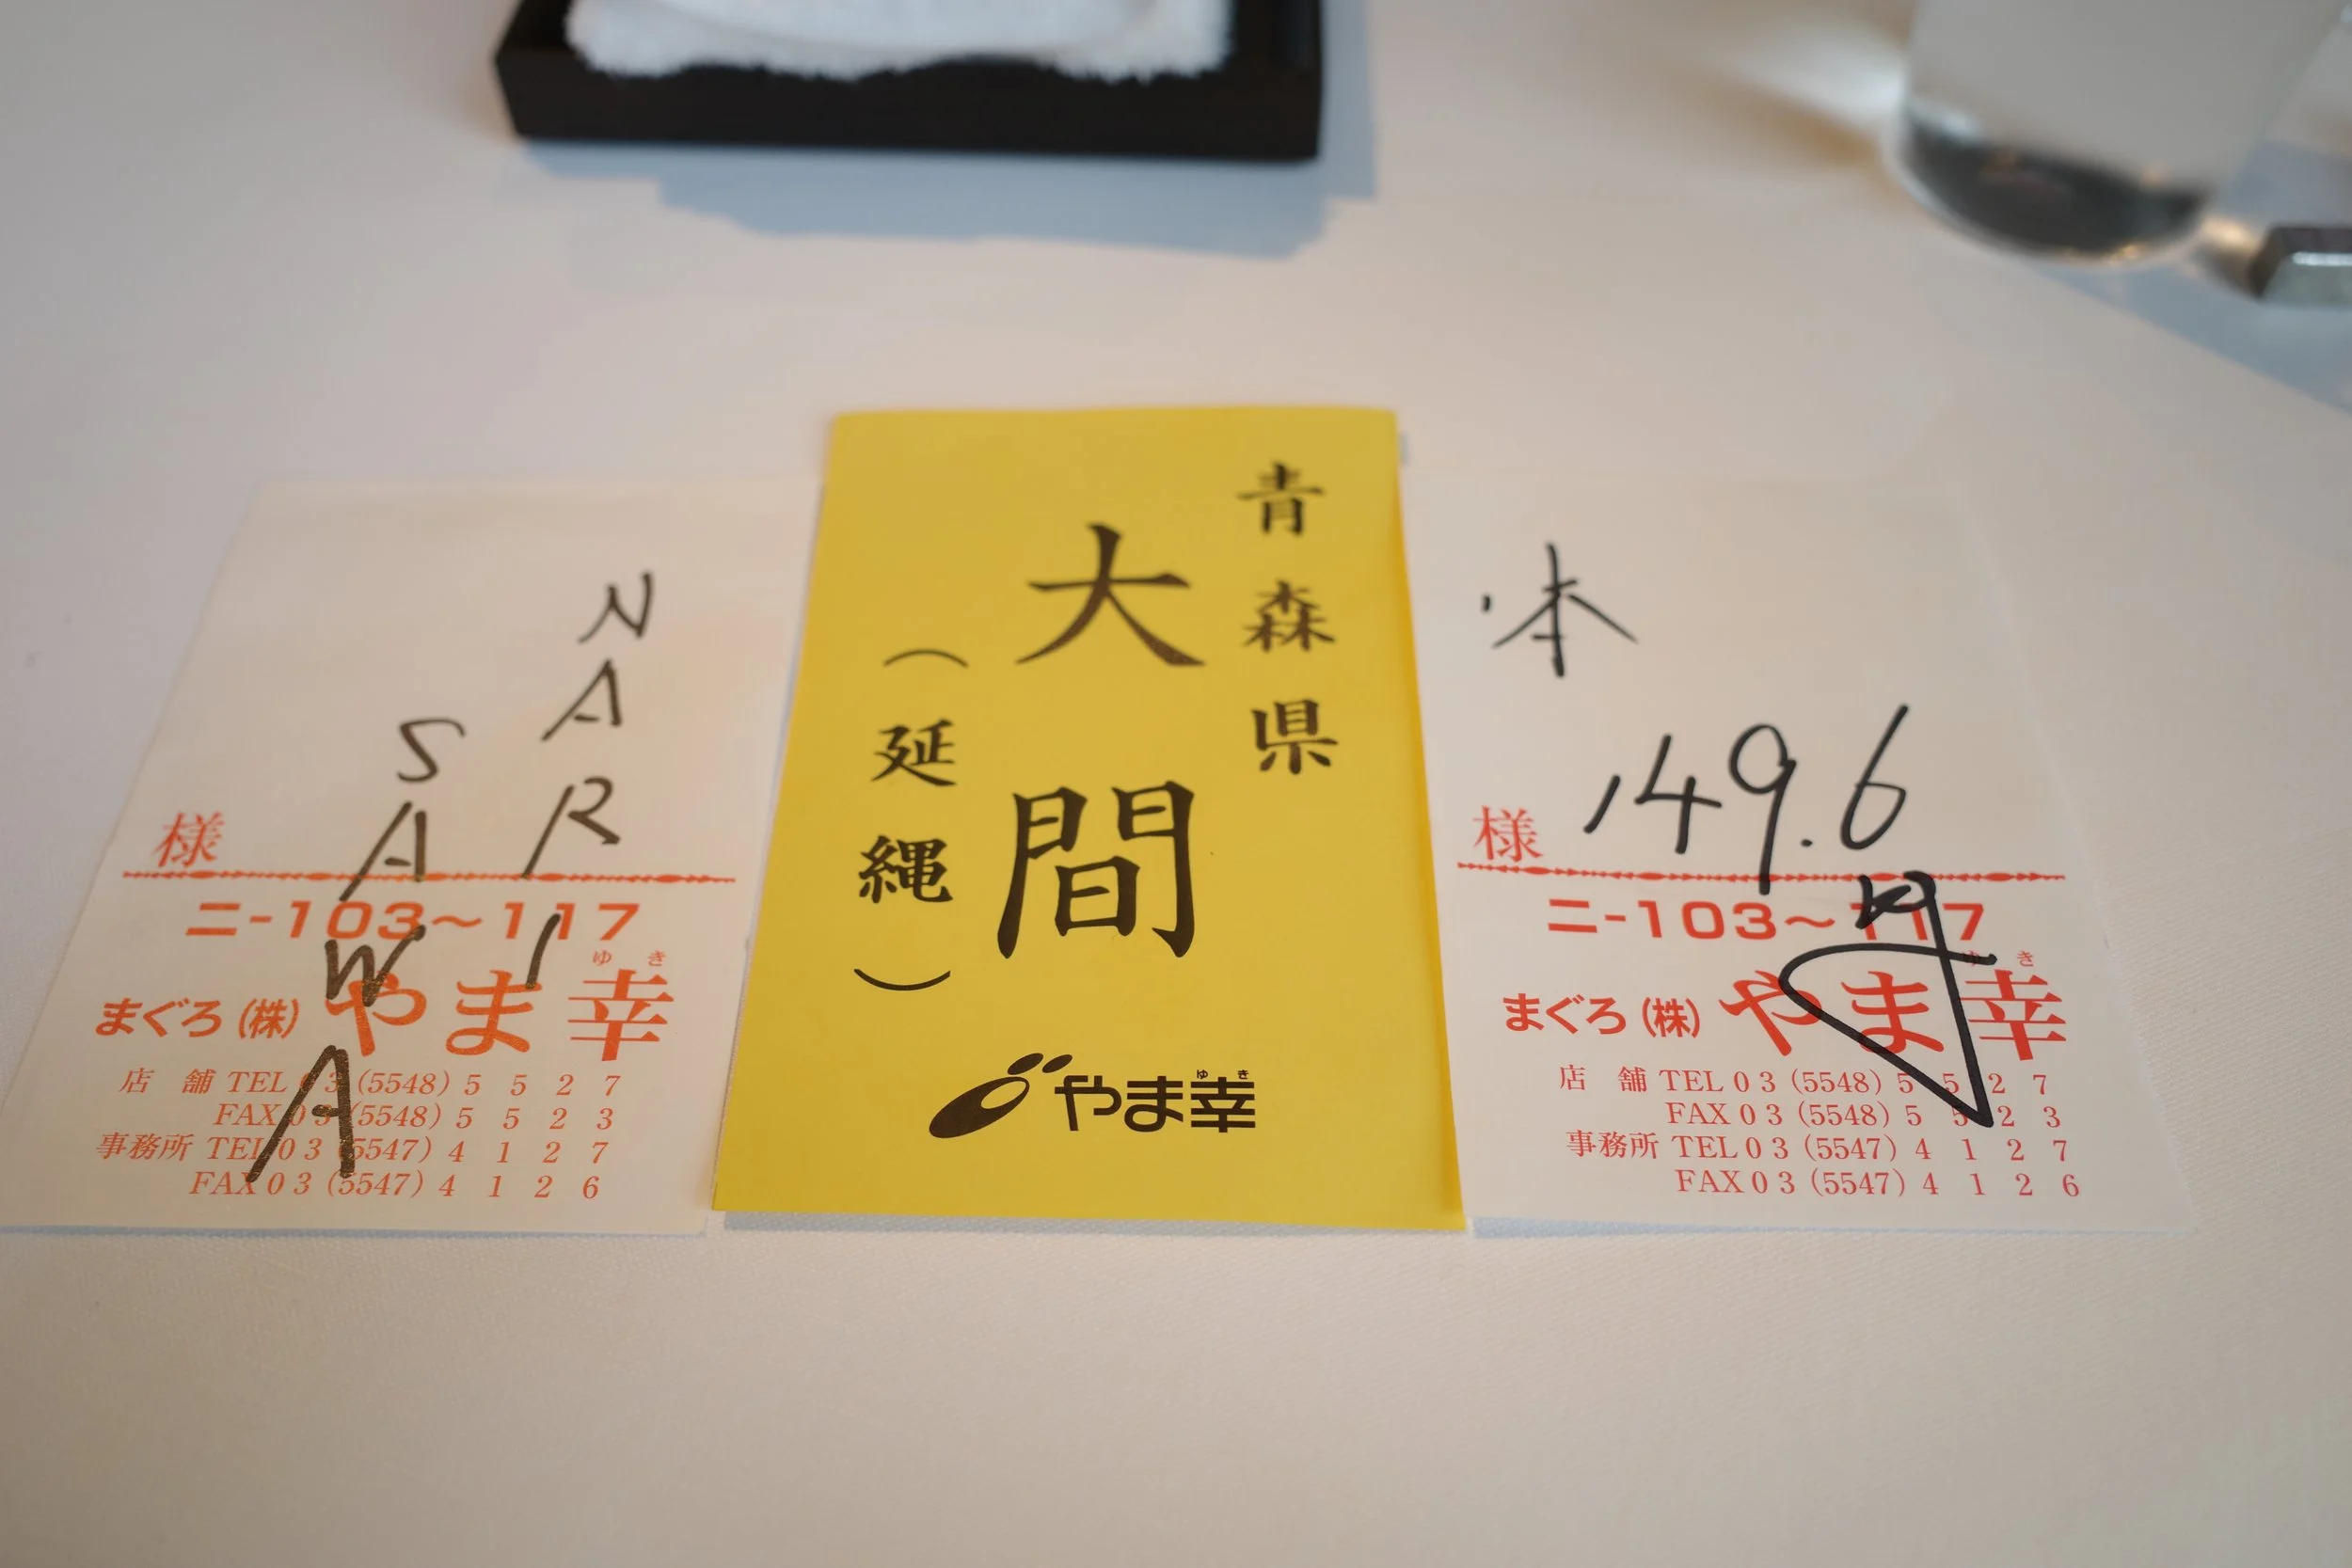 NARI
SAWA
様
ニ-103〜117
ゆき
まぐろ(株)やま幸
店舗 TEL 03 (5548) 5527
FAX 03 (5548) 5523
事務所 TEL 03 (5547) 4127
FAX 03 (5547) 4126
青森県
大間
(延縄)
ゆき
やま幸
本
149.6
様
ニ-103〜117
ゆき
まぐろ(株)やま幸
店舗 TEL 03 (5548) 5527
FAX 03 (5548) 5523
事務所 TEL 03 (5547) 4127
FAX 03 (5547) 4126